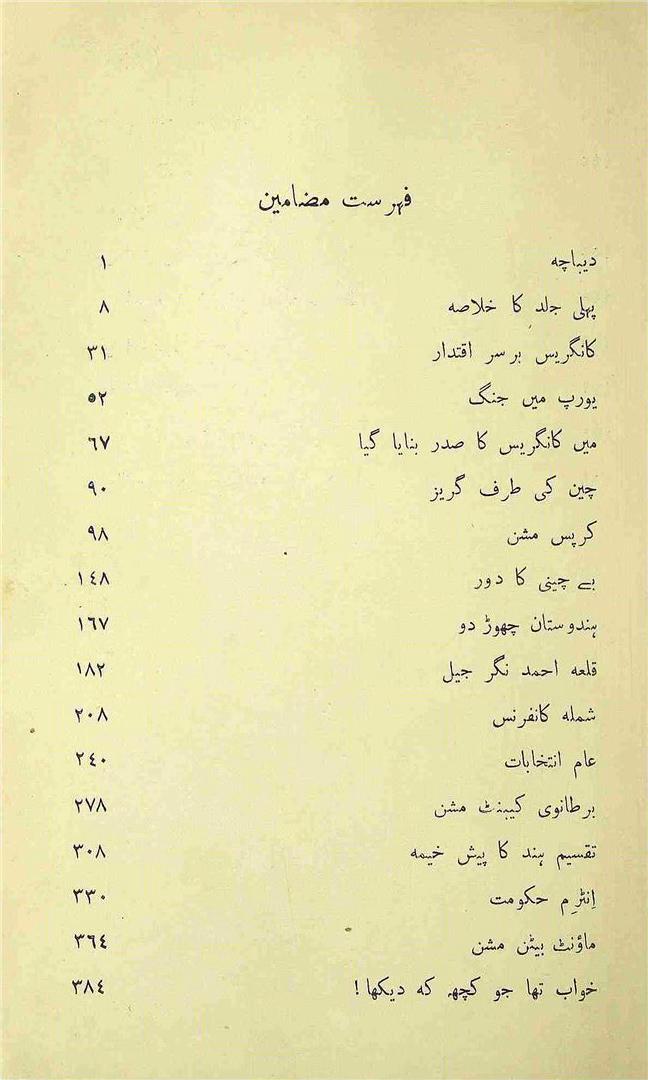 فہرست مضامین
دیباچہ ١
پہلی جلد کا خلاصہ ٨
کانگریس برسر اقتدار ٣١
یورپ میں جنگ ٥٢
میں کانگریس کا صدر بنایا گیا ٦٧
چین کی طرف گریز ٩٠
کرپس مشن ٩٨
بے چینی کا دور ١٤٨
ہندوستان چھوڑ دو ١٦٧
قلعہ احمد نگر جیل ١٨٢
شملہ کانفرنس ٢٠٨
عام انتخابات ٢٤٠
برطانوی کیبنٹ مشن ٢٧٨
تقسیم ہند کا پیش خیمہ ٣٠٨
اِنٹرِم حکومت ٣٣٠
ماؤنٹ بیٹن مشن ٣٦٤
خواب تھا جو کچھ کہ دیکھا! ٣٨٤